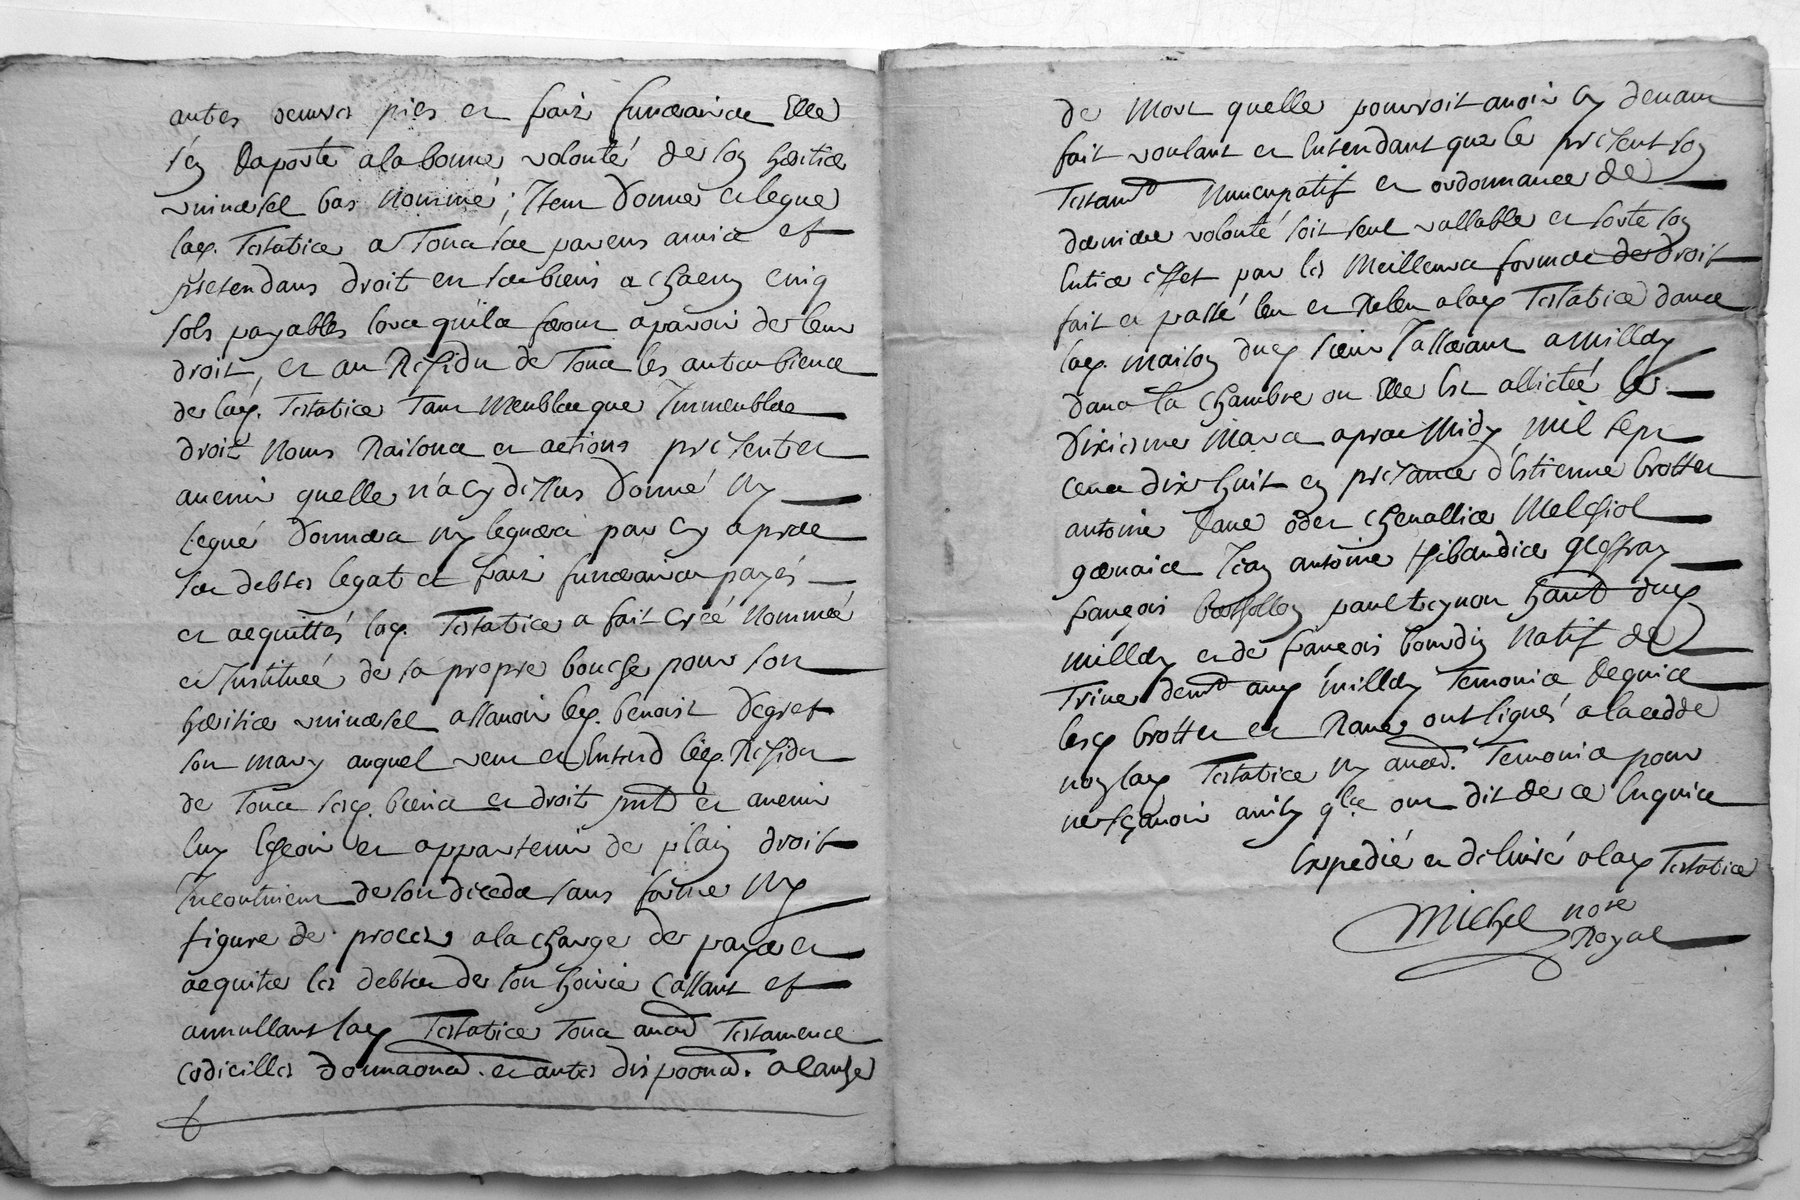 autres oeuvres pies et fraiz funeraires Elle
s'en Raporte a la bonne volonté de son heritier
universel bas nommé; Item Donne et legue
lad. Testatrice a Tous ses parens amis et
pretendans droit en ses biens a chacun cinq
sols payables lors quils feront aparoir de leur
droit, et au Residu de Tous les autres biens
de lad. Testatrice Tant Meubles que Immeubles
droit Noms Raisons et actions presents et
avenir quelle n'a cy dessus Donné ny
legué Donnera ny leguera par cy apres
ses debtes legats et fraiz funeraires payés
et acquittés lad. Testatrice a fait créé Nommé
et Institué de sa propre bouche pour son
heritier universel assavoir led. benoist Degret
son mary auquel veut et Entend led. Residu
de Tous sesd. biens et droits pnts et avenir
luy Escheoir et appartenir de plain droit
Incontinent de son decedz sans forme Ny
figure de procès a la charge de payer et
acquiter les debtes de son hoirie Cassant et
annullant lad. Testatrice Tous autres Testamens
codicilles Donnaons. et autres dispoons. a cause
de Mort quelle pourroit avoir cy devant
fait voulant et Entendant que le present son
Testamt Nuncupatif et ordonnance de
derniere volonté soit seul vallable et sorte son
Entier effet par les Meilleures formes de droit
fait et passé leu et Releu a lad. Testatrice dans
lad. maison dud. sieur a millery
dans la chambre ou Elle Est allictée le
Dixieme Mars apres Midy mil sept
cens dix huit en presance d'Estienne brottet
antoine Rane chevallier Melchiol
Jean antoine Geoffray
françois paul habitts dud.
millery et de françois bourdin Natif de
demt aud. millery Temoins Requis
lesd. brottet et Rane ont signés a la cedde
non lad. Testatrice ny autres. Temoins pour
ne sçavoir ainsy qls ont dit de ce Enquis
Expedié et delivré a lad. Testatrice
Michel nore
Royal